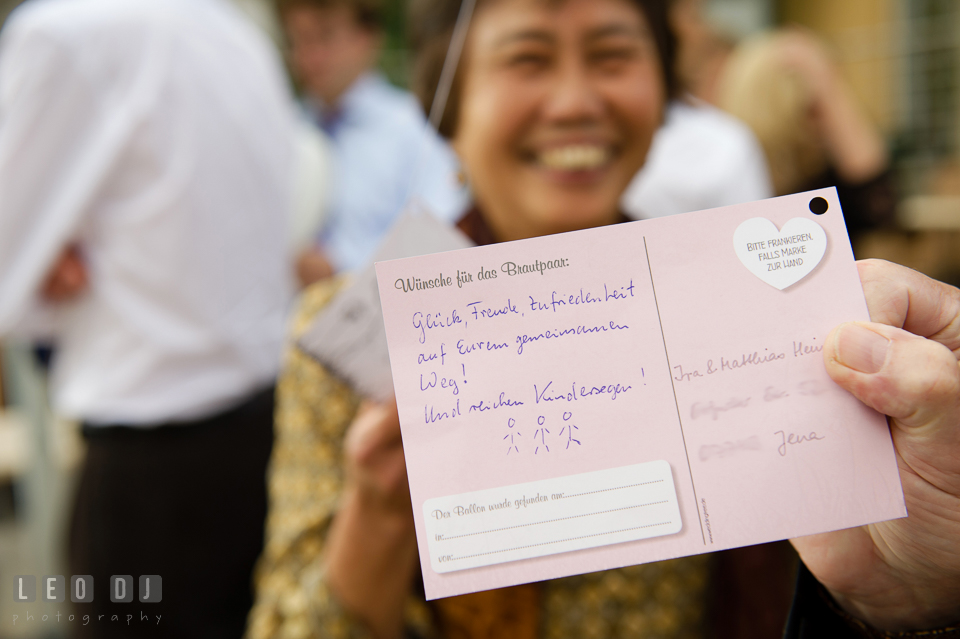 Wünsche für das Brautpaar:
Glück, Freude, Zufriedenheit
auf Eurem gemeinsamen
Weg!
Und reichen Kindersegen!
Der Ballon wurde gefunden am:
in:
von:
BITTE FRANKIEREN,
FALLS MARKE
ZUR HAND
& Matthias
Jena
LEO DJ
photography